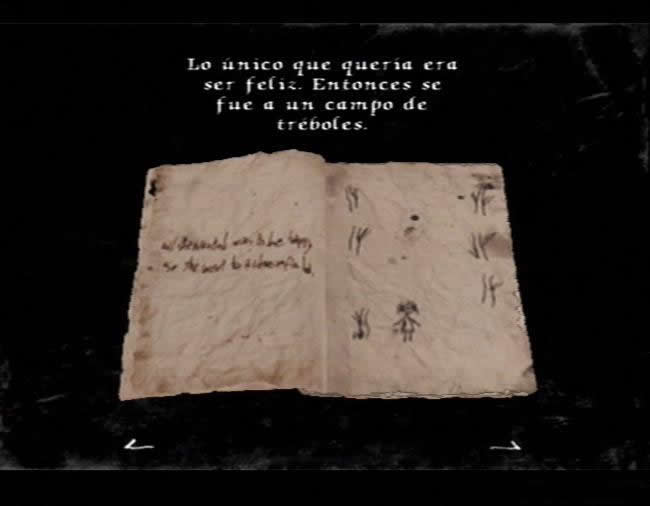 Lo único que quería era
ser feliz. Entonces se
fue a un campo de
tréboles.
all she wanted was to be happy
So she went to a clover field.